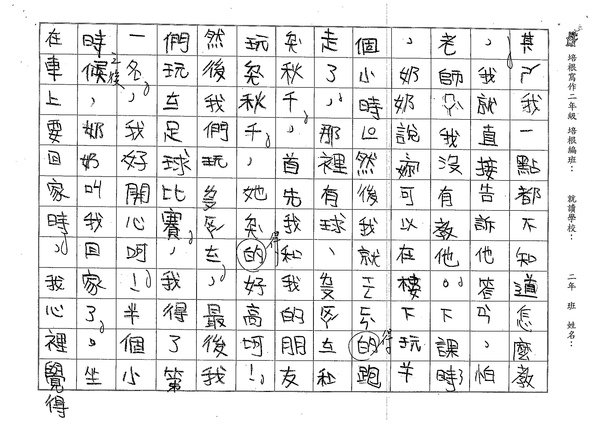 培根寫作二年級 培根編班： 就讀學校： 二年 班 姓名：
其 我一點都不知道怎麼教
，我就直接告訴他答 ，怕
老師 我沒有教他。下課時，
，奶奶說 可以在樓下玩半
個小時 然後我就 的得跑
走了，那裡有球、 和
秋千，首先我和我的朋友
玩 秋千，她 的得好高呵！
然後我們玩 ，最後我
們玩 足球比賽，我得了第
一名，我好開心呵！半個小
時候之後，奶奶叫我回家了。坐
在車上要回家時，我心裡覺得